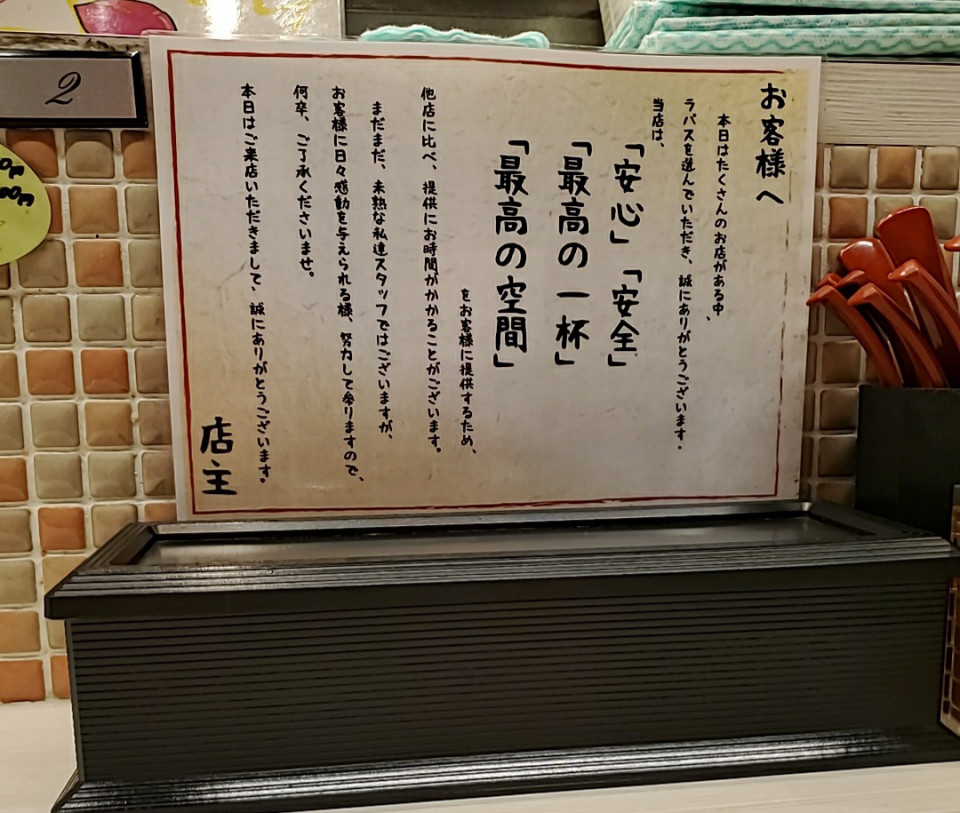 お客様へ
本日はたくさんのお店がある中、
ラパスを選んでいただき、誠にありがとうございます。
当店は、
「安心」「安全」
「最高の一杯」
「最高の空間」
をお客様に提供するため、
他店に比べ、提供にお時間がかかることがございます。
まだまだ、未熟な私達スタッフではございますが、
お客様に日々感動を与えられる様、努力して参りますので、
何卒、ご了承くださいませ。
本日はご来店いただきまして、誠にありがとうございます。
店主
2